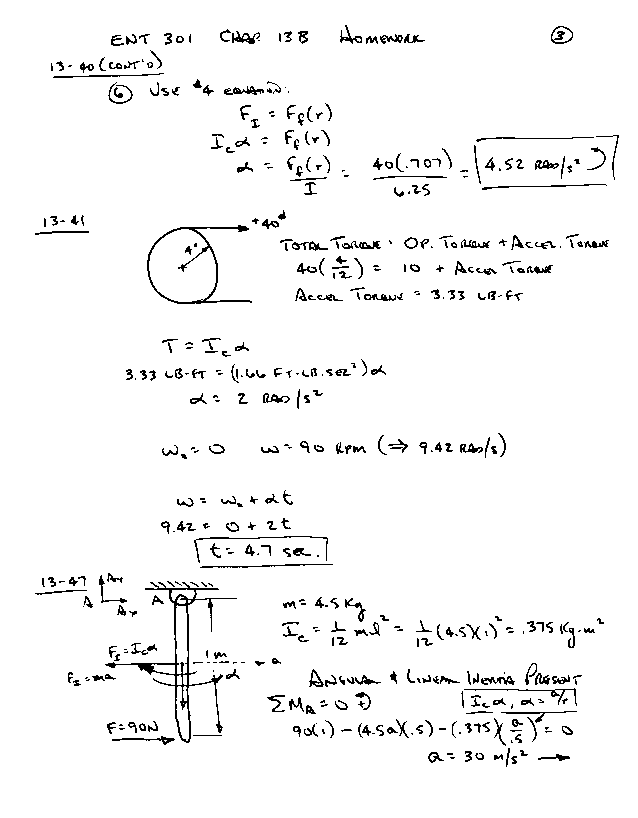 ENT 301 CHAP 13B HOMEWORK 3
13-40 (CONT'D)
6 USE #4 EQUATION:
F_I = F_f(r)
I_c α = F_f(r)
α = F_f(r)/I = 40(.707)/6.25 = 4.52 RAD/s²
13-41
+40#
4"
TOTAL TORQUE = OP. TORQUE + ACCEL. TORQUE
40(4/12) = 10 + ACCEL TORQUE
ACCEL TORQUE = 3.33 LB-FT
T = I_c α
3.33 LB-FT = (1.66 FT-LB.SEC²)α
α = 2 RAD/s²
ω₀ = 0 ω = 90 RPM (⇒ 9.42 RAD/s)
ω = ω₀ + αt
9.42 = 0 + 2t
t = 4.7 SEC.
13-47
A_Y
A A_X
A
m = 4.5 Kg
I_c = 1/12 ml² = 1/12 (4.5)(1)² = .375 Kg-m²
F_I = I_c α
1 m
a
F_I = ma
α
F = 90N
ANGULAR & LINEAR INERTIA PRESENT
ΣM_A = 0 +
I_c α, α = a/r
90(1) - (4.5a)(.5) - (.375)(a/.5) = 0
a = 30 m/s² →